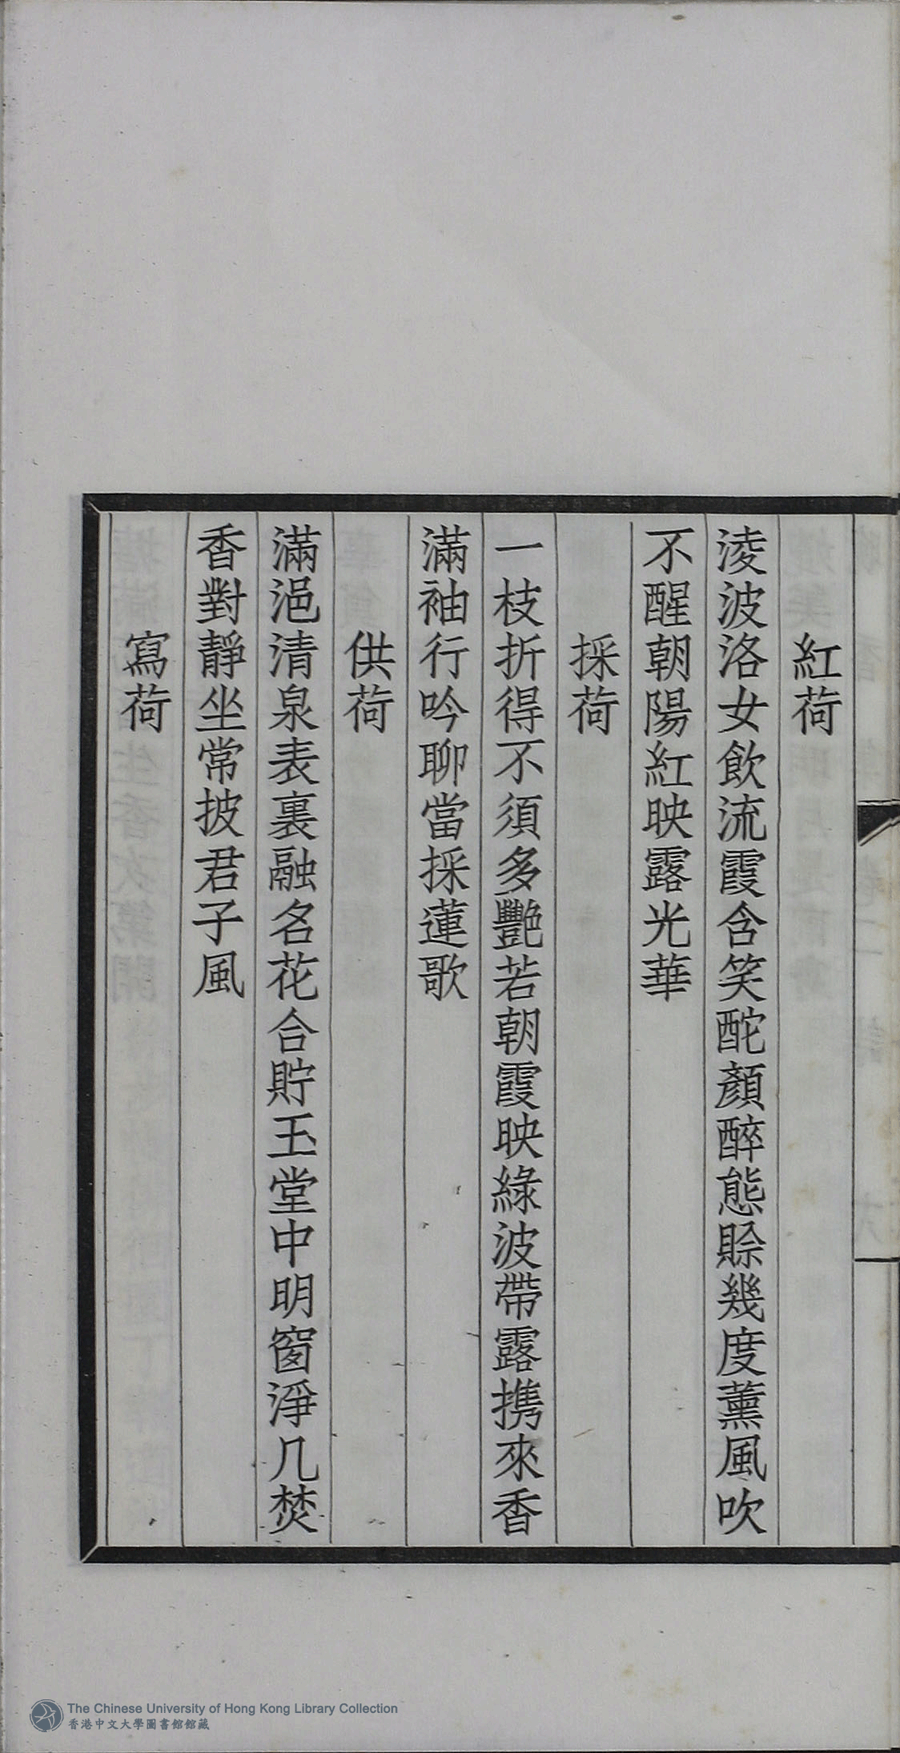 紅荷
淩波洛女飲流霞含笑酡顏醉態賖幾度薰風吹
不醒朝陽紅映露光華
採荷
一枝折得不須多艷若朝霞映綠波帶露携來香
滿袖行吟聊當採蓮歌
供荷
滿浥清泉表裏融名花合貯玉堂中明窗淨几焚
香對靜坐常披君子風
寫荷
The Chinese University of Hong Kong Library Collection
香港中文大學圖書館館藏